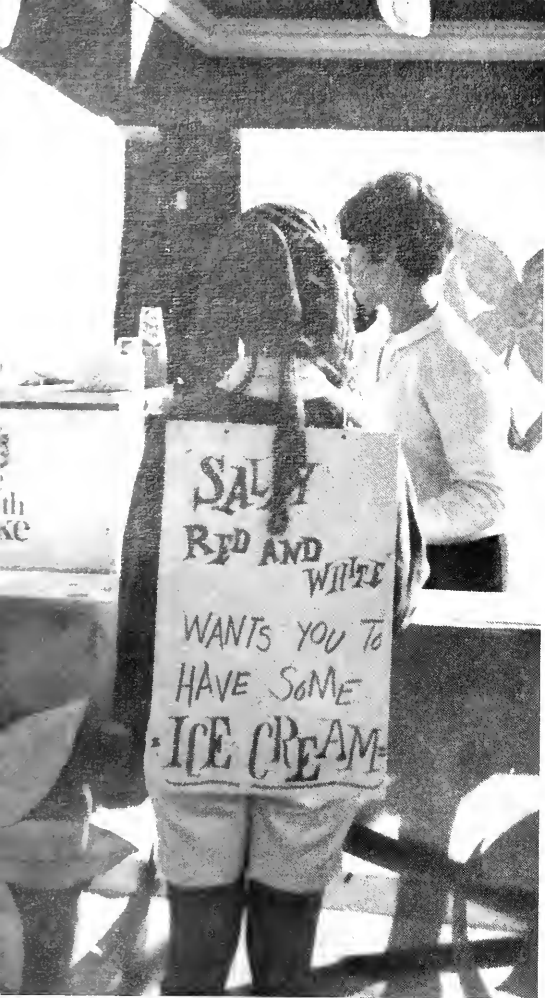 th
ke
SALLY
RED AND
WHITE
WANTS YOU To
HAVE SoME
ICE CREAM